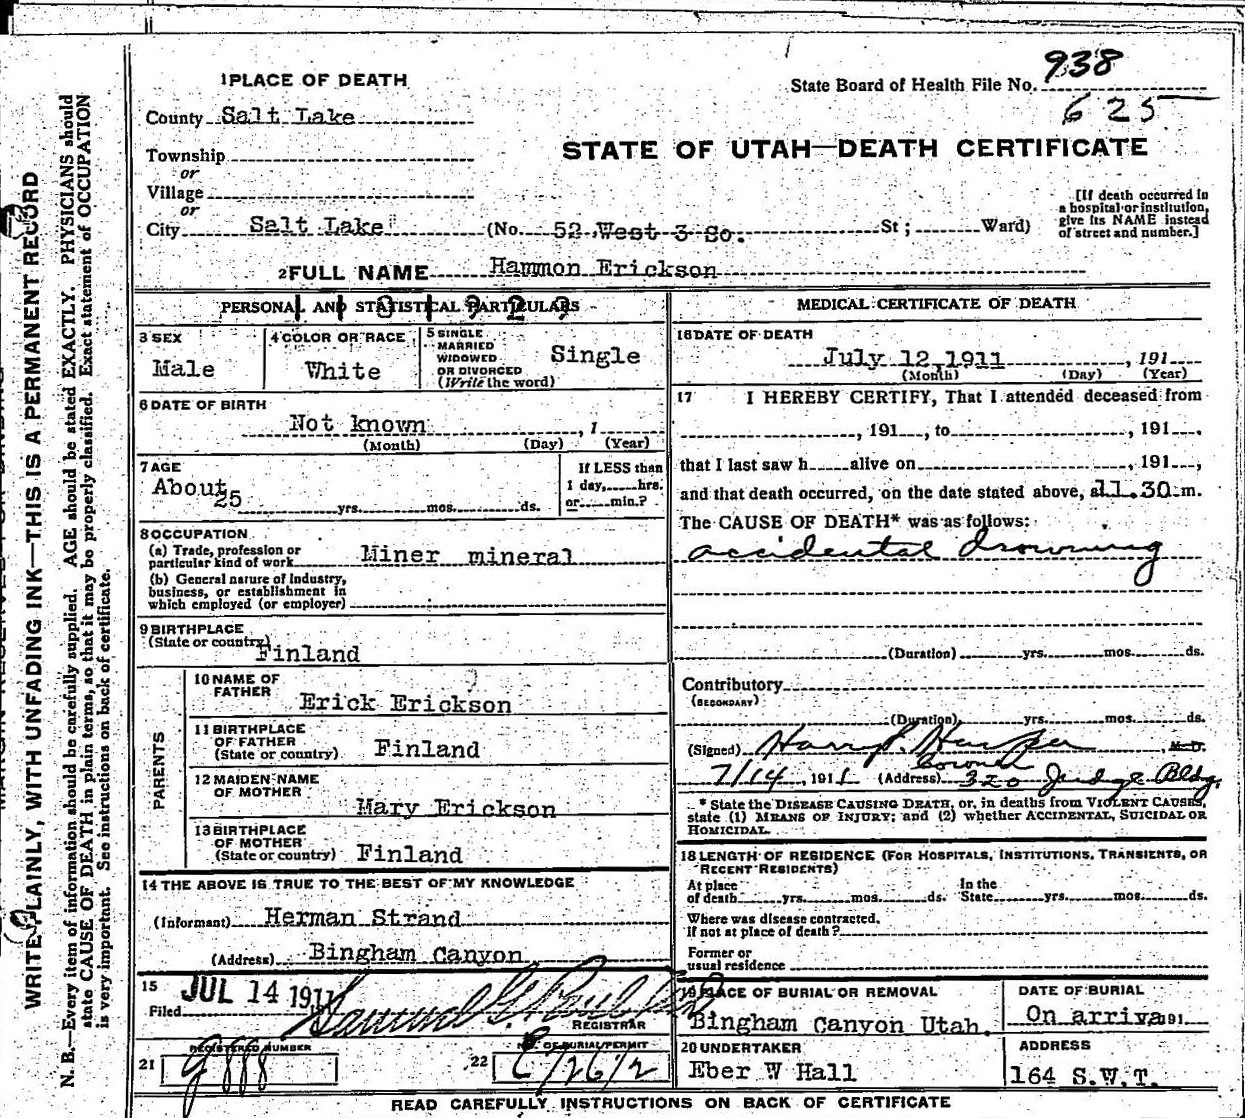 938
State Board of Health File No.
625
1 PLACE OF DEATH
County Salt Lake
STATE OF UTAH—DEATH CERTIFICATE
Township
or
Village
or
City Salt Lake (No. 52 West 3 So. St; Ward)
[If death occurred in
a hospital or institution,
give its NAME instead
of street and number.]
2 FULL NAME Hammon Erickson
PERSONAL AND STATISTICAL PARTICULARS
3 SEX
Male
4 COLOR OR RACE
White
5 SINGLE
MARRIED
WIDOWED
OR DIVORCED
(Write the word)
Single
6 DATE OF BIRTH
Not known , 1
(Month) (Day) (Year)
7 AGE
About
25 yrs. mos. ds.
If LESS than
1 day, hrs.
or min.?
8 OCCUPATION
(a) Trade, profession or
particular kind of work Miner mineral
(b) General nature of industry,
business, or establishment in
which employed (or employer)
9 BIRTHPLACE
(State or country)
Finland
PARENTS
10 NAME OF
FATHER
Erick Erickson
11 BIRTHPLACE
OF FATHER
(State or country) Finland
12 MAIDEN NAME
OF MOTHER
Mary Erickson
13 BIRTHPLACE
OF MOTHER
(State or country) Finland
14 THE ABOVE IS TRUE TO THE BEST OF MY KNOWLEDGE
(Informant) Herman Strand
(Address) Bingham Canyon
15
Filed JUL 14 1911
REGISTRAR
21 REGISTERED NUMBER
22 NO. OF BURIAL PERMIT
MEDICAL CERTIFICATE OF DEATH
16 DATE OF DEATH
July 12, 1911 , 191
(Month) (Day) (Year)
17 I HEREBY CERTIFY, That I attended deceased from
, 191 , to , 191 ,
that I last saw h alive on , 191 ,
and that death occurred, on the date stated above, at 11.30 m.
The CAUSE OF DEATH* was as follows:
accidental drowning
(Duration) yrs. mos. ds.
Contributory
(SECONDARY)
(Duration) yrs. mos. ds.
(Signed) Harry S. Harper M.D.
Coroner
7/14, 1911 (Address) 320 Judge Bldg.
* State the DISEASE CAUSING DEATH, or, in deaths from VIOLENT CAUSES,
state (1) MEANS OF INJURY; and (2) whether ACCIDENTAL, SUICIDAL OR
HOMICIDAL.
18 LENGTH OF RESIDENCE (FOR HOSPITALS, INSTITUTIONS, TRANSIENTS, OR
RECENT RESIDENTS)
At place
of death yrs. mos. ds.
In the
State yrs. mos. ds.
Where was disease contracted,
if not at place of death?
Former or
usual residence
19 PLACE OF BURIAL OR REMOVAL
Bingham Canyon Utah.
DATE OF BURIAL
On arriva 191
20 UNDERTAKER
Eber W Hall
ADDRESS
164 S.W.T.
READ CAREFULLY INSTRUCTIONS ON BACK OF CERTIFICATE
WRITE PLAINLY, WITH UNFADING INK—THIS IS A PERMANENT RECORD
N. B.—Every item of information should be carefully supplied. AGE should be stated EXACTLY. PHYSICIANS should
state CAUSE OF DEATH in plain terms, so that it may be properly classified. Exact statement of OCCUPATION
is very important. See instructions on back of certificate.